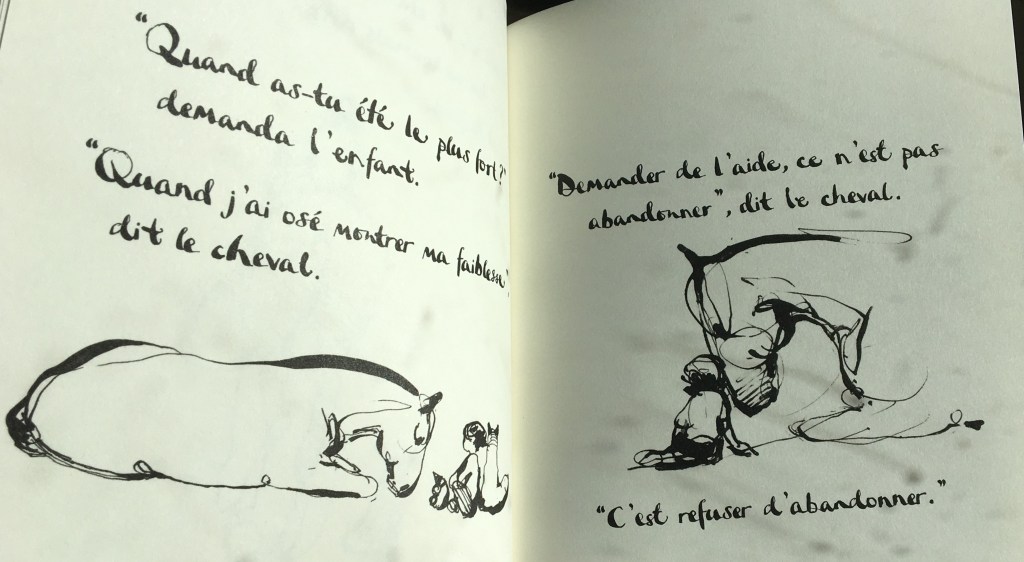 “Quand as-tu été le plus fort?”
demanda l'enfant.
“Quand j'ai osé montrer ma faiblesse”,
dit le cheval.
“Demander de l'aide, ce n'est pas
abandonner”, dit le cheval.
“C'est refuser d'abandonner.”